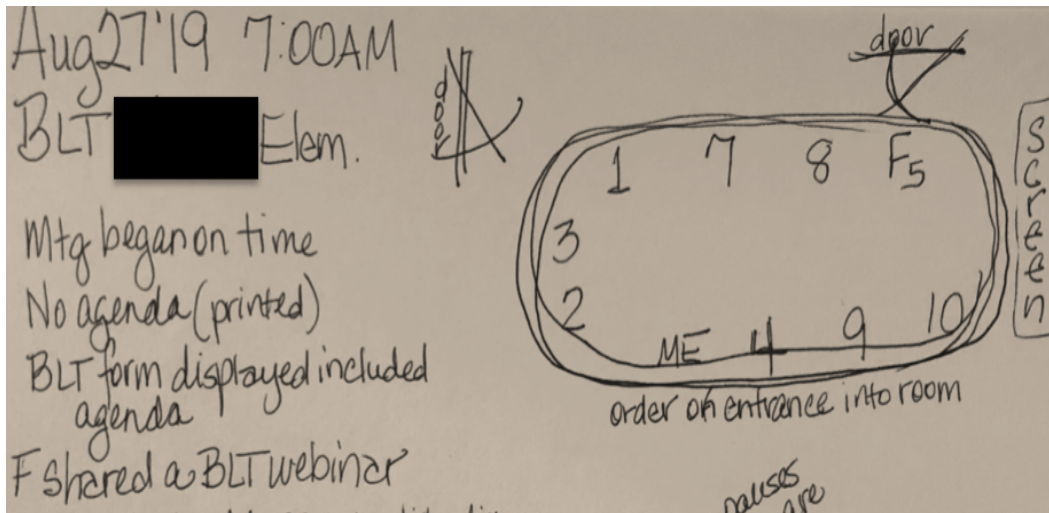 Aug 27'19 7:00AM
BLT Elem.
Mtg began on time
No agenda (printed)
BLT form displayed included
agenda
F shared a BLT webinar
door
door
1 7 8 F5
3
2
ME 4 9 10
Screen
order of entrance into room
pauses
are